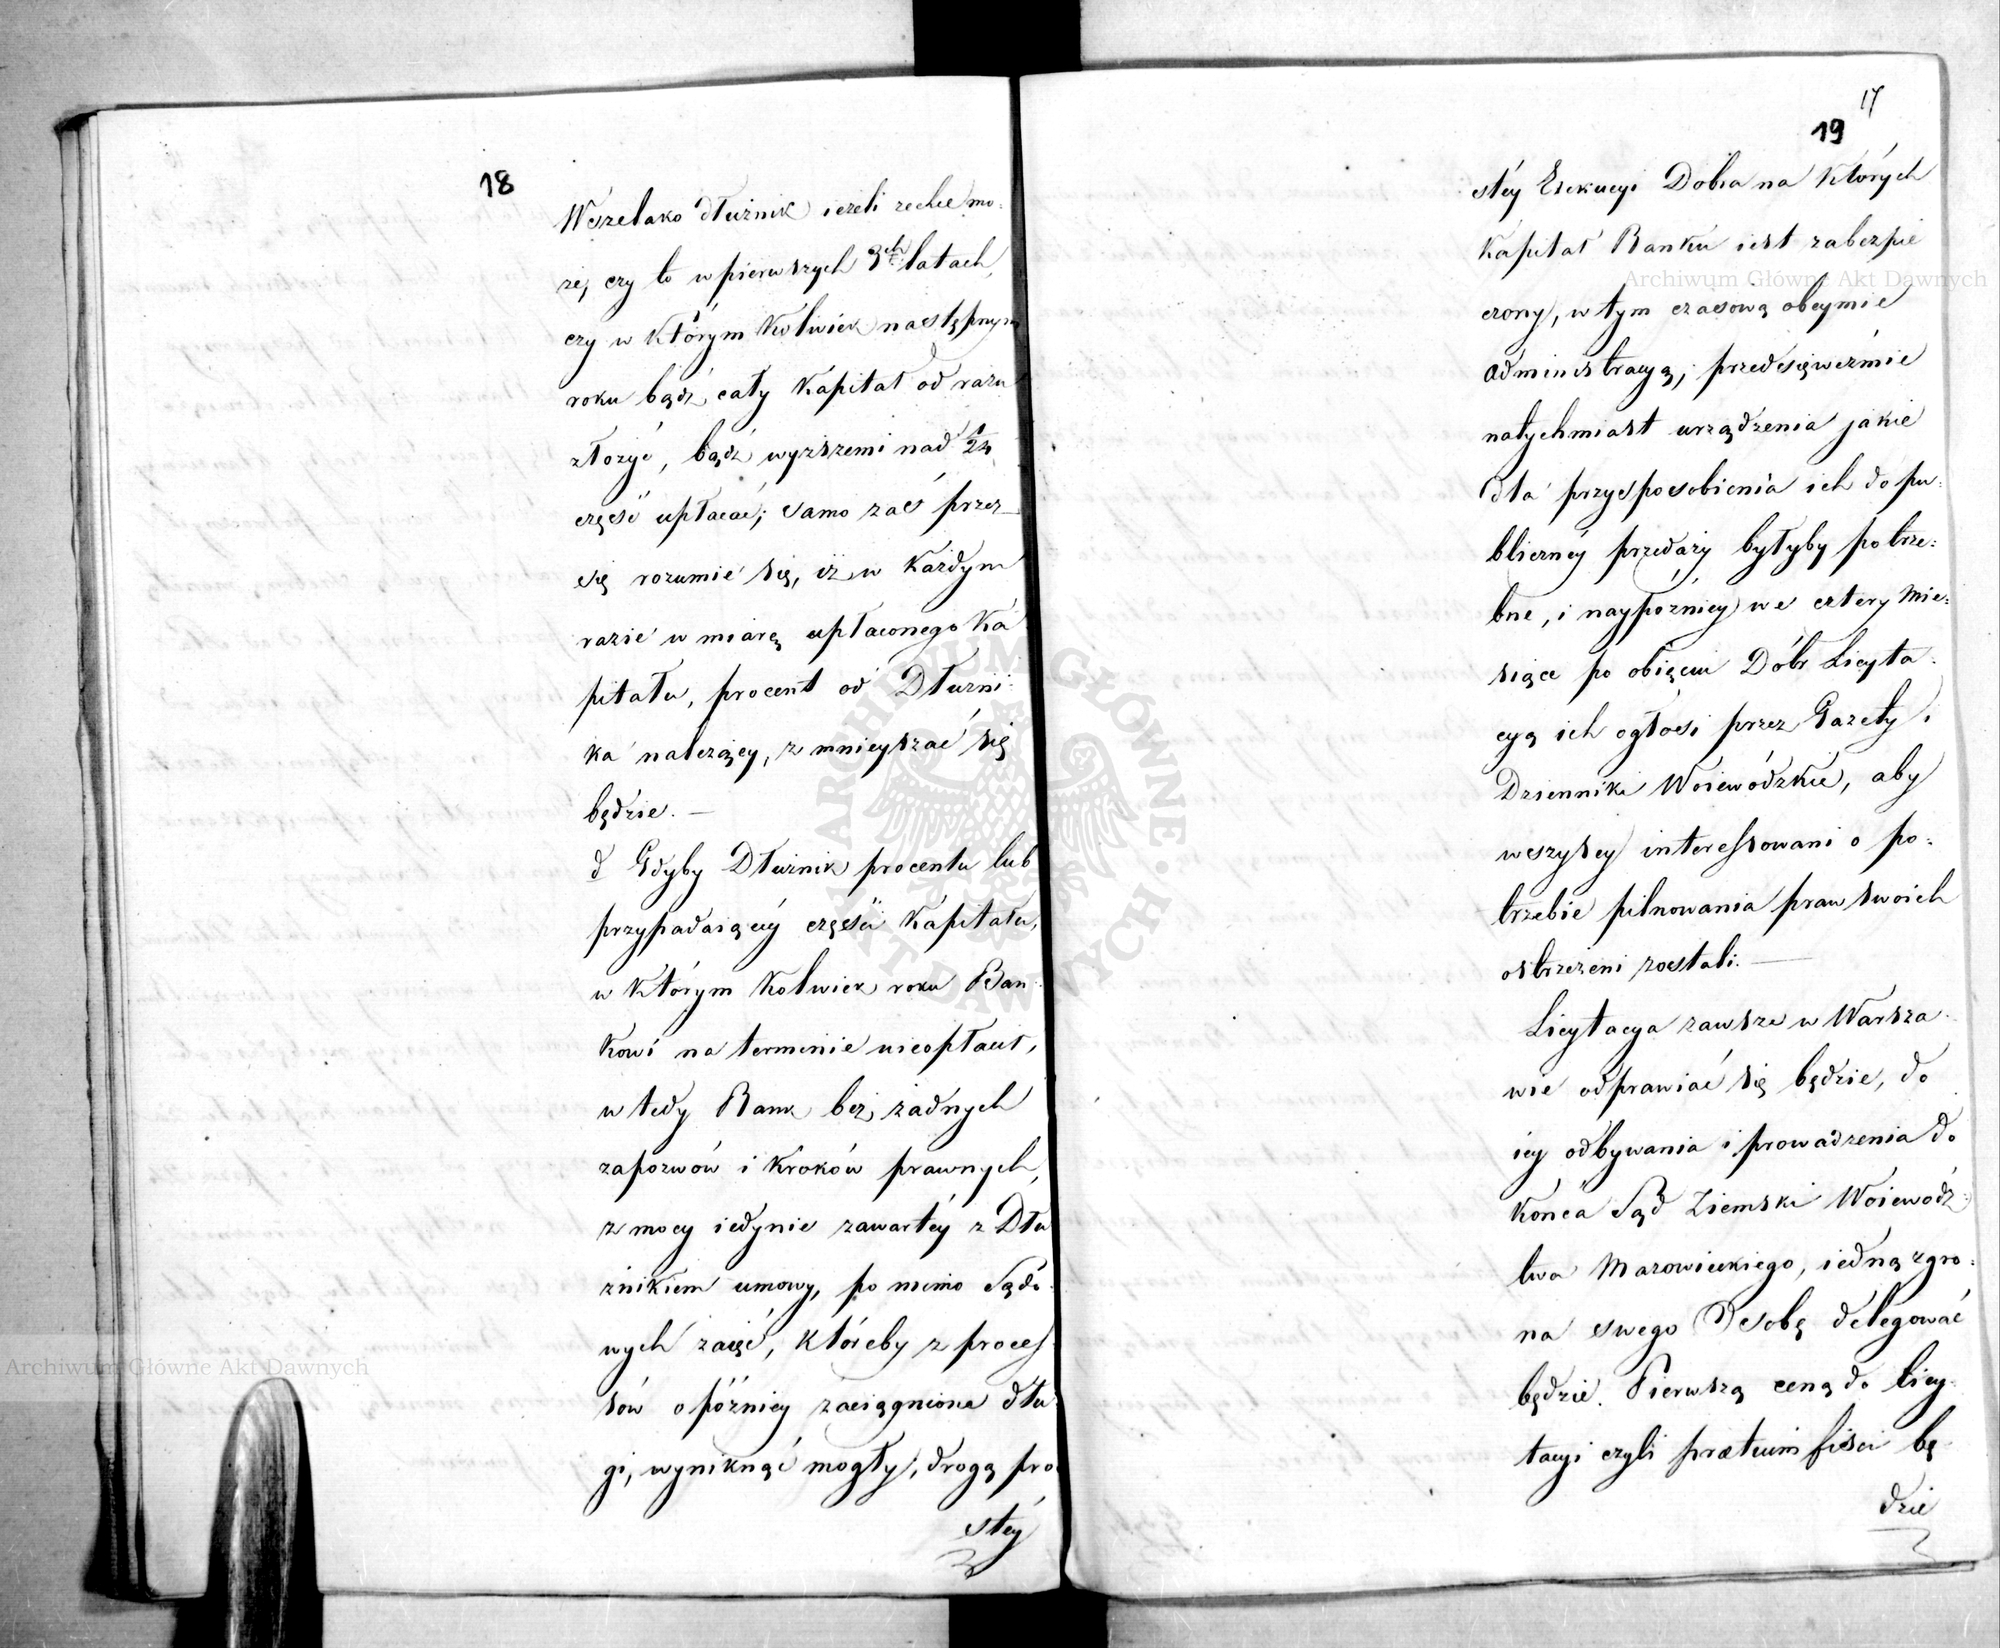 18
Wszelako dłużnik ieżeli zechce mo-
że, czy to w pierwszych 3ch latach,
czy w którym kolwiek następnym
roku bądź cały Kapitał od razu
złożyć, bądź wyższemi nad 1/24
część upłacać; samo zaś przez
się rozumie się, iż w każdym
razie w miarę upłaconego Ka
pitału, procent od Dłużni-
ka należący, zmnieyszać się
będzie. —
d Gdyby Dłużnik procentu lub
przypadaiącéy części Kapitału,
w którym kolwiek roku Ban-
kowi na terminie nieopłacił,
wtedy Bank bez żadnych
zapozwów i kroków prawnych,
z mocy iedynie zawartéy z Dłu
żnikiem umowy, po mimo Sądo-
wych zaięć, któreby z proces-
sów o późniey zaciągnione dłu-
gi, wyniknąć mogły, drogą pro
stéy
17
19
stéy Exekucyi Dobra na których
Kapitał Banku iest zabezpie
czony, w tym czasową obeymie
administracyą, przedsięweźmie
natychmiast urządzenia jakie
dla przysposobienia ich do pu-
bliczney przedaży byłyby potrze-
bne, i naypóźniey we cztery mie-
siące po obięciu Dóbr Licyta-
cyą ich ogłosi przez Gazety i
Dzienniki Woiewódzkie, aby
wszyscy interessowani o po-
trzebie pilnowania praw swoich
ostrzeżeni zostali. —
Licytacya zawsze w Warsza-
wie odprawiać się będzie, do
iey odbywania i prowadzenia do
końca Sąd Ziemski Woiewódz-
twa Mazowieckiego, iedną z gro-
na swego Osobę delegować
będzie. Pierwszą ceną do licy-
tacyi czyli prætium fisci bę-
dzie
Archiwum Główne Akt Dawnych
Archiwum Główne Akt Dawnych
ARCHIWUM GŁÓWNE AKT DAWNYCH